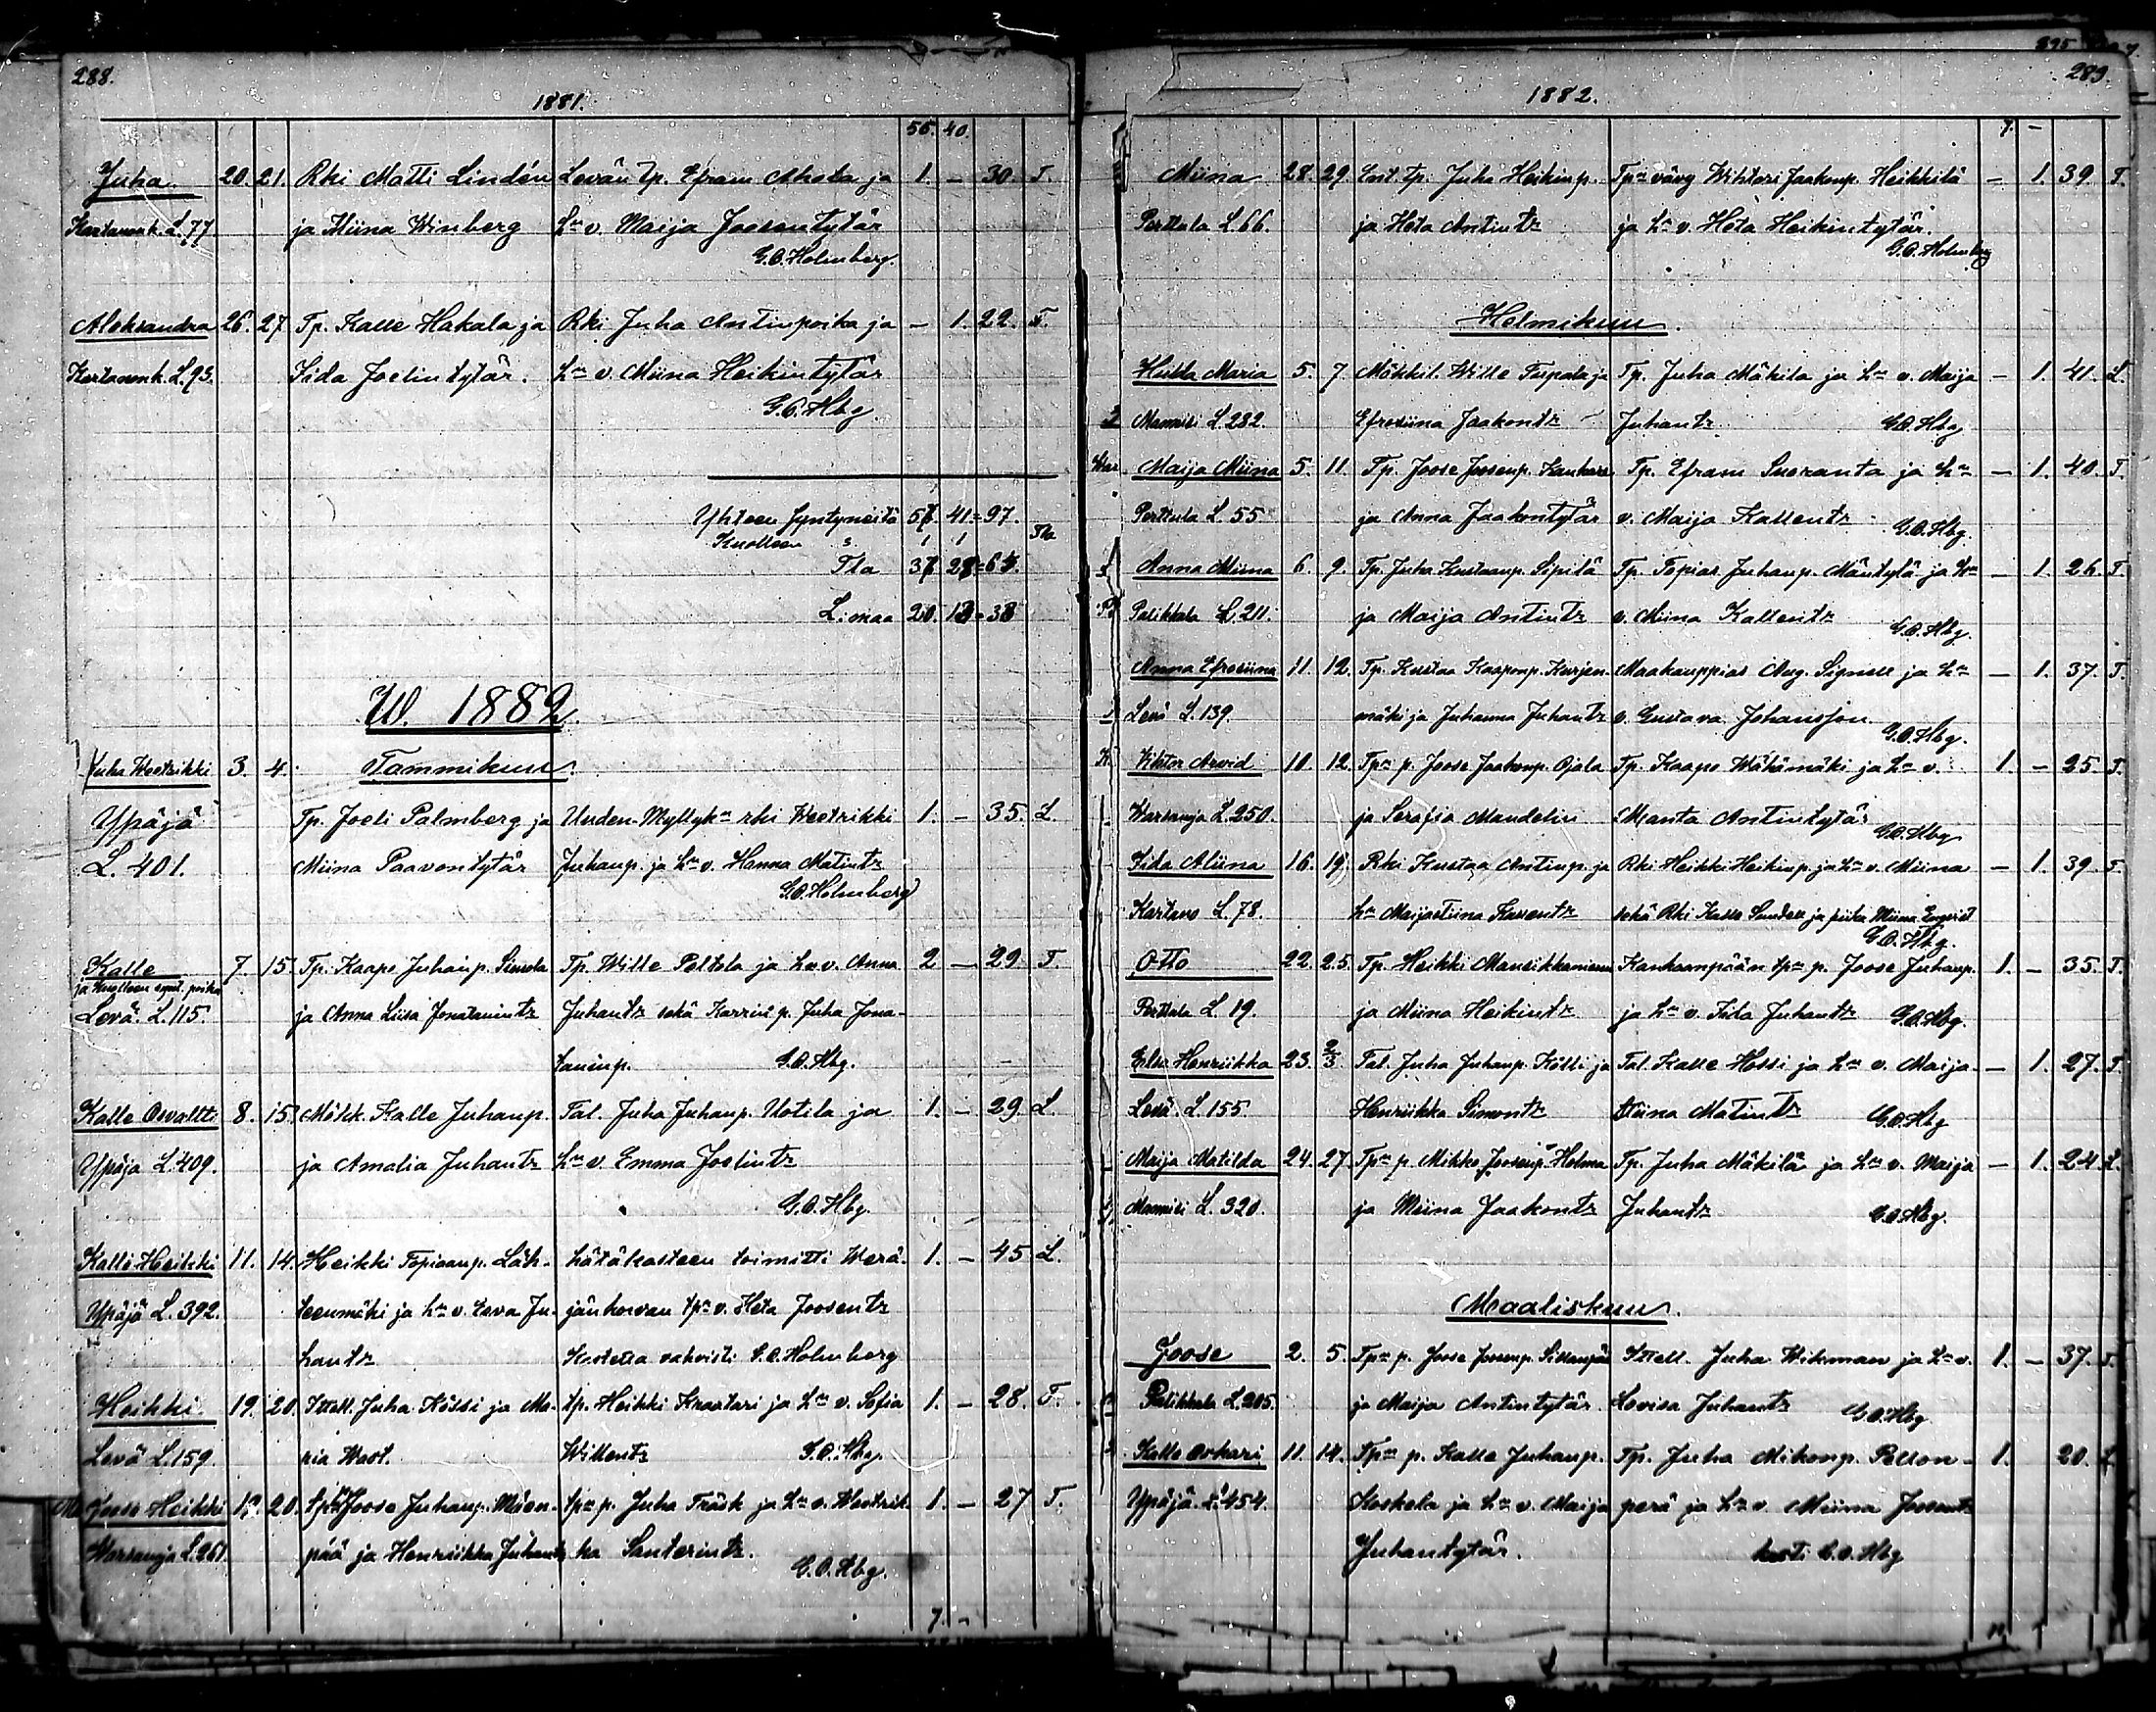 288.
1881.
56. 40.
Juha 20. 21. Rki Matti Lindén Levän Tp. Efram Ahola ja 1. – 30. T.
Kartanonk. L. 77 ja Miina Winberg hn v. Maija Joosentytär
G.O. Holmberg.
Aleksandra 26. 27 Tp. Kalle Hakala ja Rki Juha Antinpoika ja – 1. 22. T.
Kartanonk. L. 93. Iida Joelintytär. hn v. Miina Heikintytär
G.O. Hbg
Yhteen syntyneitä 57 41 = 97.
Kuolleen " 1 1
Tla
L:maa 20. 18 = 38
W. 1882.
Juha Weetrikki 3. 4. Tammikuu.
Ypäjä Tp. Joeli Palmberg ja Uuden-Myllyk:n rki Weetrikki 1. – 35. L.
L. 401. Miina Paavontytär Juhanp. ja hn v. Hanna Matintr
G.O. Holmberg
Kalle 7. 15 Tp. Kaapo Juhanp. Simola Tp. Wille Peltola ja hn v. Anna 2 – 29. T.
ja kuolleen synt. poika
Levä. L. 115. ja Anna Liisa Jonatanintr Juhantr sekä Karrin p. Juha Jona-
taninp. G.O. Hbg.
Kalle Osvaltti 8. 15. Mökk. Kalle Juhanp. Tal. Juha Juhanp. Uotila ja 1. – 29. L.
Ypäjä L. 409. ja Amalia Juhantr hn v. Emma Joelintr
G.O. Hbg.
Kalle Heikki 11. 14. Heikki Topiaanp. Läh- hätäkasteen toimitti Werä- 1. – 45 L.
Ypäjä L. 392. teenmäki ja hn v. Eeva Ju- jänkorvan tpn v. Heta Joosentr
hantr Kasteen vahvisti G.O. Holmberg
Heikki 19. 20. Ittell. Juha Kölli ja Ma- tp. Heikki Knaatari ja hn v. Sofia 1. – 28. T.
Levä L. 159. ria Wast. Willentr G.O. Hbg.
Joose Heikki 19. 20. Tpn p. Joose Juhanp. Mäen- tpn p. Juha Träsk ja hn v. Weetrik- 1. – 27 T.
Warsanoja L. 261. pää ja Henriikka Juhantr ka Santerintr.
G.O. Hbg.
7. –
289.
1882.
7. –
Miina 28. 29. Ent. tp. Juha Heikinp. Tpn vävy Wihtori Jaakonp. Heikkilä – 1. 39. T.
Perttula L. 66. ja Heta Antintr ja hn v. Heta Heikintytär.
G.O. Holmberg
Helmikuu.
Hulda Maria 5. 7. Mökkil. Wille Tupala ja Tp. Juha Mäkila ja hn v. Maija – 1. 41. L.
Mannisi L. 282. Efrosiina Jaakontr Juhantr G.O. Hbg
Maija Miina 5. 11. Tp. Joose Joosenp. Kankare Tp. Efram Suoranta ja hn – 1. 40. T.
Perttula L. 55 ja Anna Jaakontytär v. Maija Kallentr G.O. Hbg.
Anna Miina 6. 9. Tp. Juha Kustaanp. Sipilä Tp. Topias Juhanp. Mäntylä ja hn – 1. 26. T.
Palikkala L. 211. ja Maija Antintr v. Miina Kallentr G.O. Hbg.
Anna Efrosiina 11. 12. Tp. Kustaa Kaaponp. Kurjen- Maakauppias Aug. Signell ja hn – 1. 37. T.
Levä L. 139. mäki ja Juhanna Juhantr v. Gustava Johansson G.O. Hbg.
Wihtor Arvid 10. 12. Tpn p. Joose Jaakonp. Ojala Tp. Kaapo Wähämäki ja hn v. 1. – 25. T.
Warsanoja L. 250. ja Serafia Mandelin Manta Antintytär G.O. Hbg
Iida Miina 16. 19. Rki Kustaa Antinp. ja Rki Heikki Heikinp. ja hn v. Miina – 1. 39. T.
Kartano L. 78. hn Maijastiina Kallentr sekä Rki Kalle Sundell ja piika Miina Engvist
G.O. Hbg.
Otto 22. 25. Tp. Heikki Mansikkaniemi Kankaanpään tpn p. Joose Juhanp. 1. – 35. T.
Perttula L. 19. ja Miina Heikintr ja hn v. Iida Juhantr G.O. Hbg.
Elsa Henriikka 23. 2/3 Tal. Juha Juhanp. Kölli ja Tal. Kalle Hossi ja hn v. Maija- – 1. 27. T.
Levä L. 155. Henriikka Simontr Stiina Matintr G.O. Hbg
Maija Matilda 24. 27. Tpn p. Mikko Joosenp. Holma Tp. Juha Mäkilä ja hn v. Maija – 1. 24. L.
Mannisi L. 320. ja Miina Jaakontr Juhantr G.O. Hbg.
Maaliskuu.
Joose 2. 5. Tpn p. Joose Joosenp. Sillanpää Ittell. Juha Wikman ja hn v. 1. – 37. T.
Palikkala L. 205. ja Maija Antintytär. Lovisa Juhantr G.O. Hbg
Kalle Oskari 11. 14. Tpn p. Kalle Juhanp. Tp. Juha Mikonp. Pellon- 1. 20. L
Ypäjä L. 454. Koskela ja hn v. Maija perä ja hn v. Miina Joosentr
Juhantytär. kasti G.O. Hbg